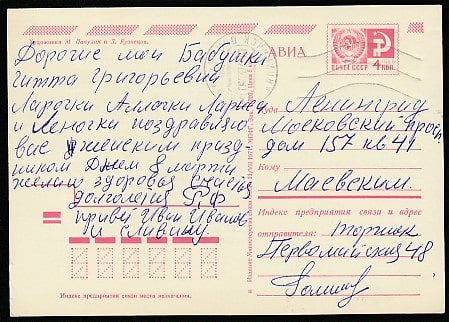 Художники М. Папулин и Л. Кузнецов.
АВИА
ПОЧТА СССР 4 КОП
Дорогие мои Бабушки
Гитта Григорьевна
Лидочки Аллочки Лариса
и Леночки поздравляю
вас женским празд
ником Днем 8 марта
желаю здоровья счастья
долголетия Р.Ф
привет Иван Иванов
и
Куда Ленинград
Московский просп
дом 157 кв 41
Кому
Маевским.
Индекс предприятия связи и адрес
отправителя: Торжок
Первомайская 48
Индекс предприятия связи места назначения.